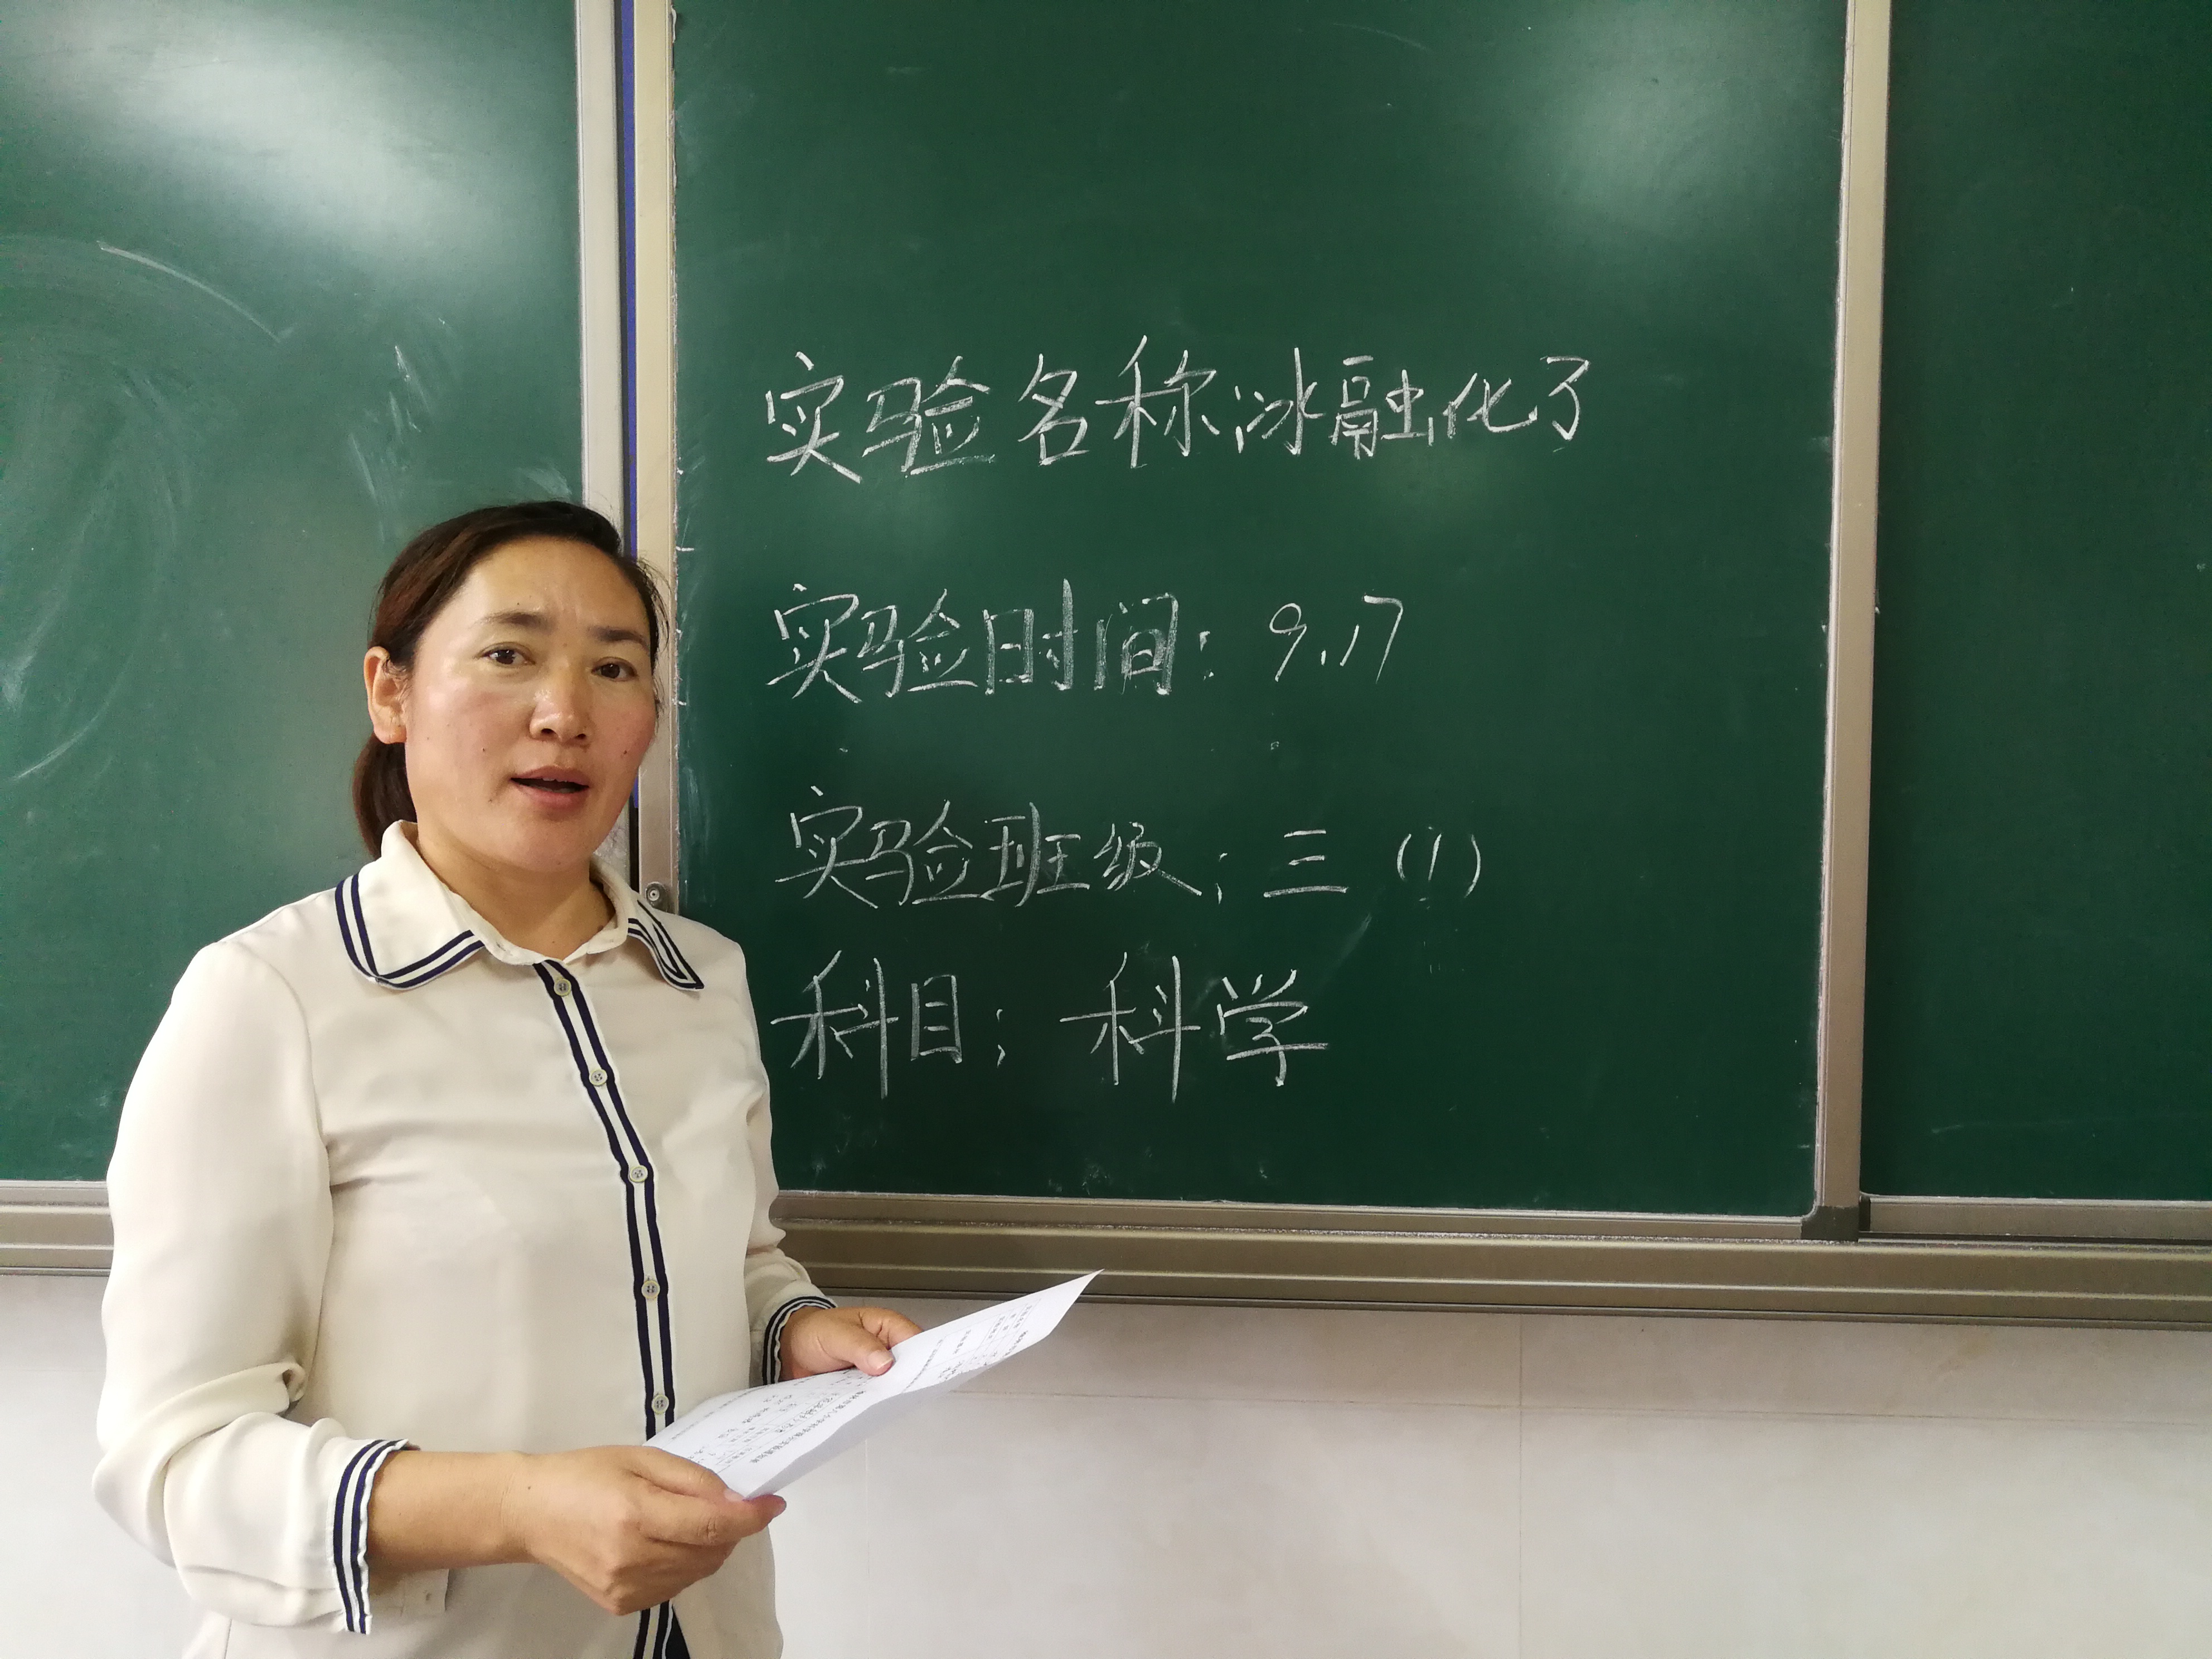 实验名称;冰融化了
实验时间:9.17
实验班级;三(1)
科目;科学